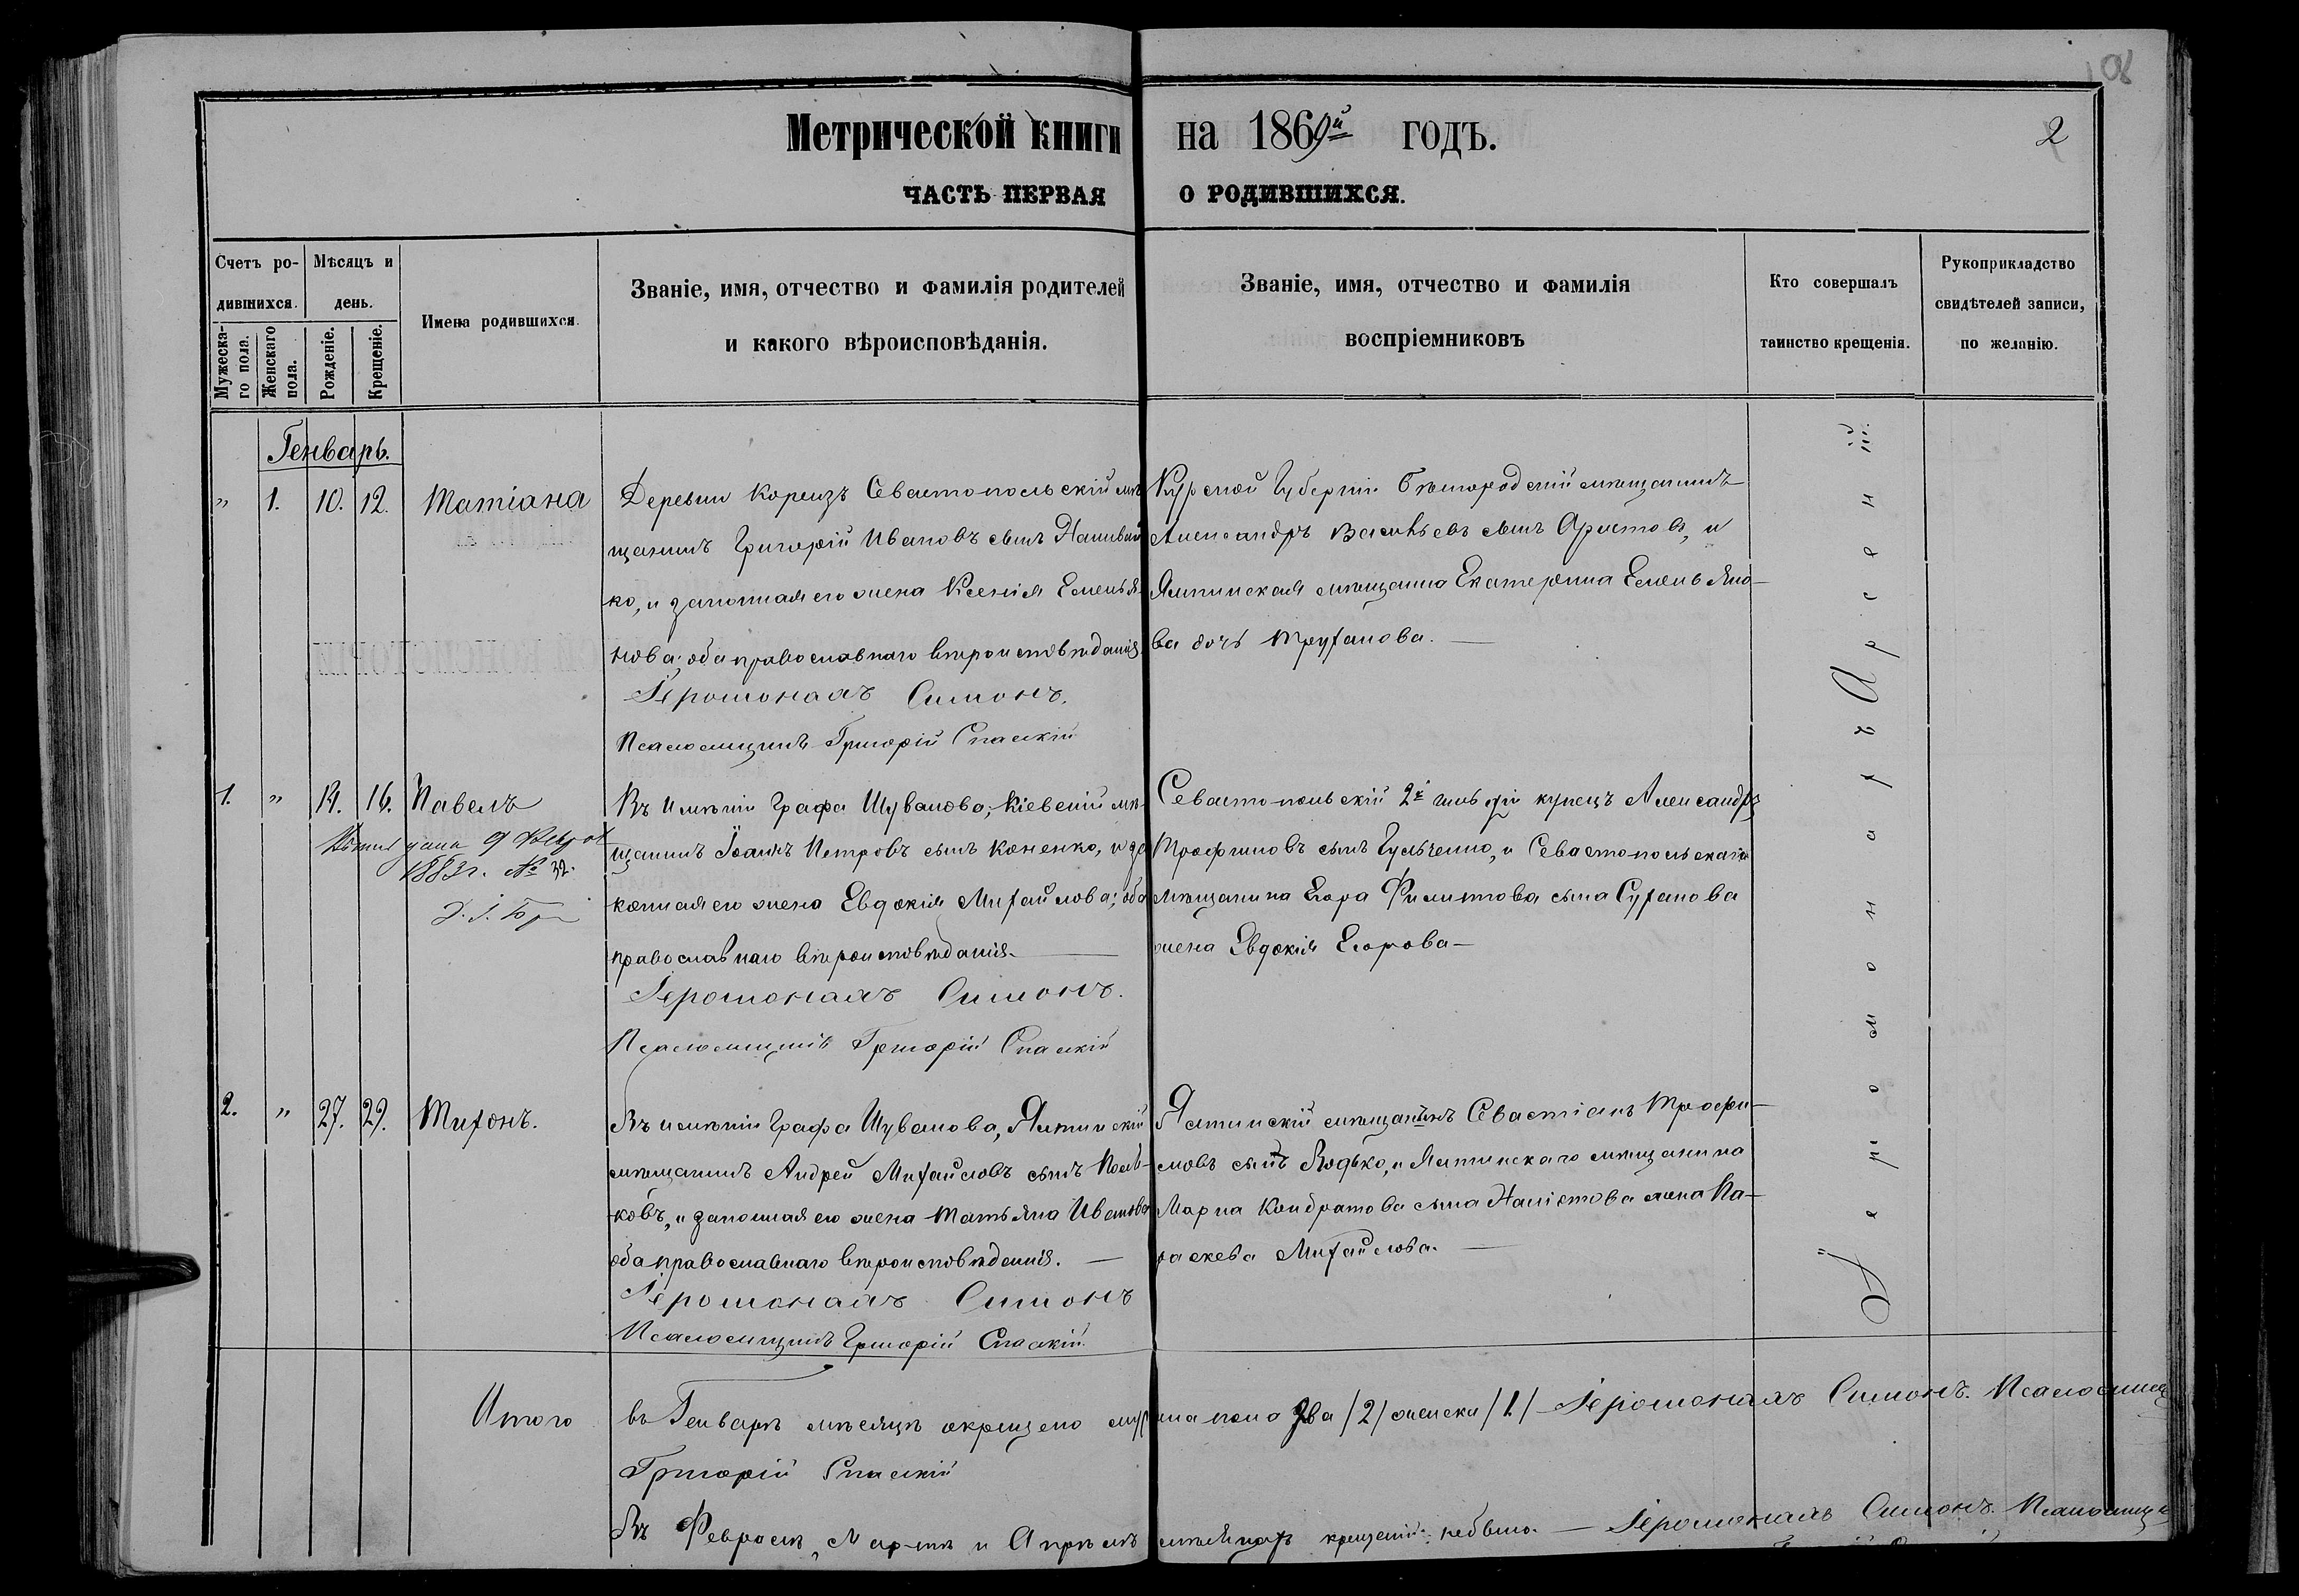 108
2
Метрической книги на 1869й годъ.
ЧАСТЬ ПЕРВАЯ О РОДИВШИХСЯ.
Счетъ родившихся.
Мужескаго пола.
Женскаго пола.
Мѣсяцъ и день.
Рожденіе.
Крещеніе.
Имена родившихся.
Званіе, имя, отчество и фамилія родителей
и какого вѣроисповѣданія.
Званіе, имя, отчество и фамилія
воспріемниковъ
Кто совершалъ
таинство крещенія.
Рукоприкладство
свидѣтелей записи,
по желанію.
Генварь.
" 1. 10. 12. Татіана
Деревни Кореизъ Севастопольскій мѣ
щанинъ Григорій Ивановъ сынъ
ко, и законная его жена Ксенія Емелья
нова; оба православнаго вѣроисповѣданія.
Іеромонахъ Симонъ.
Псаломщикъ Григорій Спаскій
Курской Губерніи Бѣлгородскій мѣщанинъ
Александръ Васильевъ сынъ Аристовъ, и
Ялтинская мѣщанка Екатерина Емельяно-
ва дочь Труфанова.
1. " 14. 16. Павелъ
дана 9 Февраля
1883г. № 32.
Въ имѣніи Графа Шувалова, Кіевскій мѣ-
щанинъ Іоаннъ Петровъ сынъ Коненко, и за
конная его жена Евдокія Михайлова; оба
православнаго вѣроисповѣданія.
Іеромонахъ Симонъ.
Псаломщикъ Григорій Спаскій
Севастопольскій 2й гильдіи купецъ Александръ
Трофимовъ сынъ Гульченко, и Севастопольскаго
мѣщанина Егора Филиппова сына Суханова
жена Евдокія Егорова
2. " 27. 29. Тихонъ.
Въ имѣніи Графа Шувалова, Ялтинскій
мѣщанинъ Андрей Михайловъ сынъ
ковъ, и законная его жена Татьяна Иванова
оба православнаго вѣроисповѣданія.
Іеромонахъ Симонъ
Псаломщикъ Григорій Спаскій.
Ялтинскій мѣщанинъ Севастіанъ Трофи-
мовъ сынъ Редько, и Ялтинскаго мѣщанина
Марка Кондратова сына жена Па-
раскева Михайлова.
Іеромонахъ Арсеній.
Итого въ Генварѣ мѣсяцѣ окрещено муж пола два /2/ женска /1/ Іеромонахъ Симонъ. Псаломщикъ
Григорій Спаскій
Въ Февралѣ, Мартѣ и Апрѣлѣ мѣсяцахъ крещеній не было. — Іеромонахъ Симонъ. Псаломщикъ